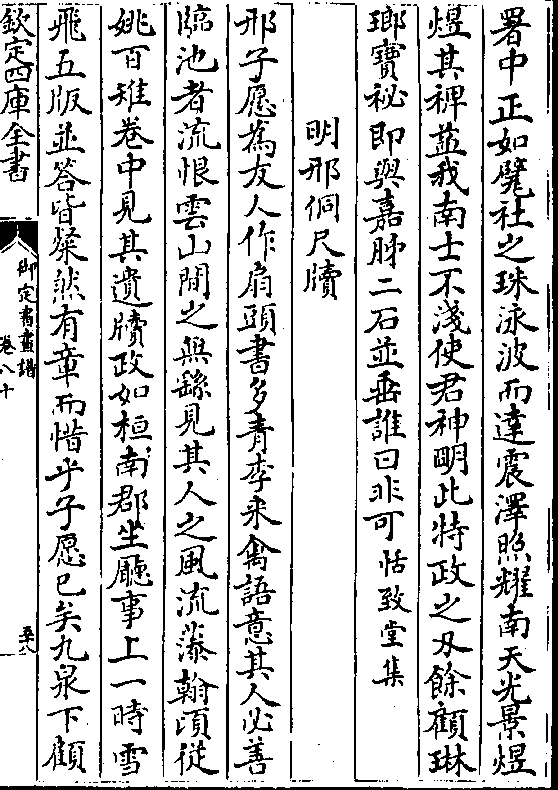 署中正如甓社之珠泳波而達震澤照耀南天光景煜
煜其裨益我南士不淺使君神明此特政之刃餘顧琳
瑯寶祕即與嘉肺二石並垂誰曰非可恬致堂集
明邢侗尺牘
邢子愿為友人作扇頭書多青李来禽語意其人必善
臨池者流恨雲山間之無繇見其人之風流藻翰頃従
姚百雉卷中見其遺牘政如桓南郡坐廳事上一時雪
飛五版並答皆粲然有章而惜乎子愿已矣九泉下顧
欽定四庫全書
御定書畫譜
卷八十
至八